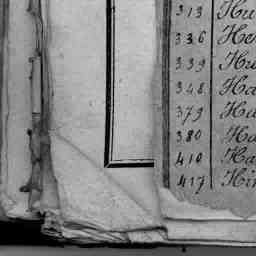 313 Hu
336 He
339 Hu
348 Ha
379 Hu
380 Ha
410 Ha
417 Hin